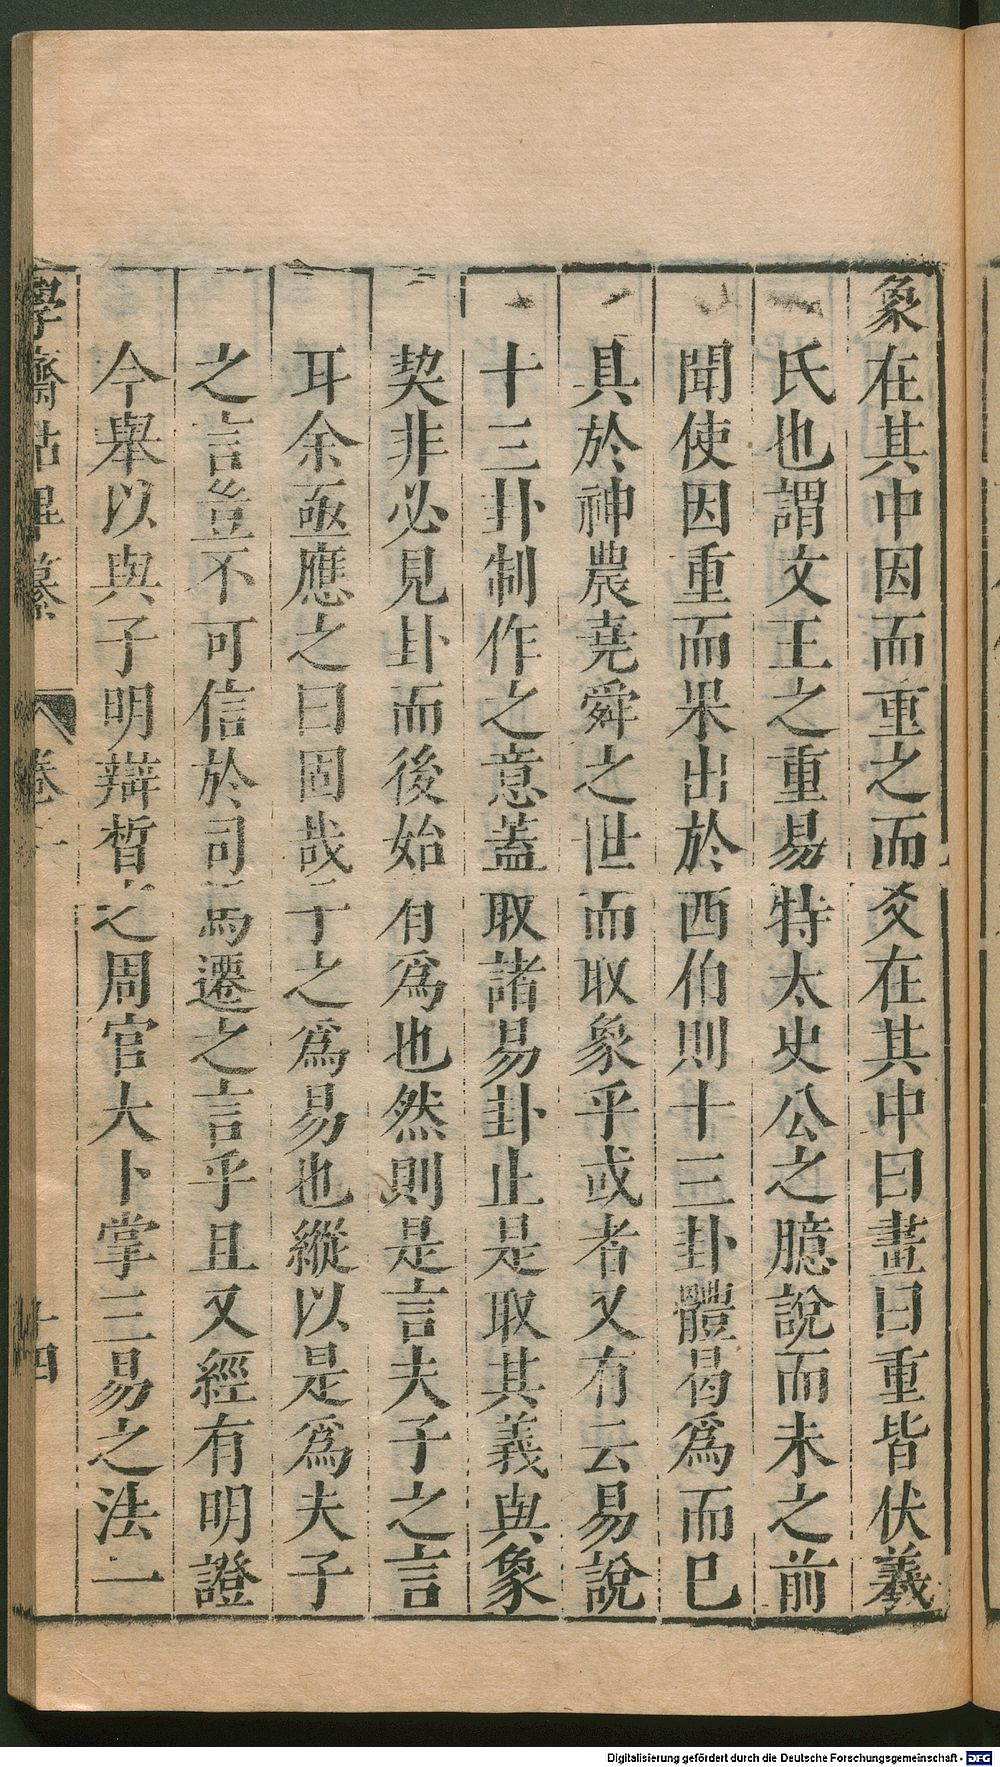 象在其中因而重之而爻在其中曰畫曰重皆伏羲
氏也謂文王之重易特太史公之臆說而未之前
聞使因重而果出於西伯則十三卦體曷爲而已
具於神農堯舜之世而取象乎或者又有云易說
十三卦制作之意蓋取諸易卦止是取其義與象
契非必見卦而後始有爲也然則是言夫子之言
耳余亟應之曰固哉子之爲易也縱以是爲夫子
之言豈不可信於司馬遷之言乎且又經有明證
今舉以與子明辯晳之周官大卜掌三易之法一
學齋佔畢纂 卷一 十四
Digitalisierung gefördert durch die Deutsche Forschungsgemeinschaft - DFG